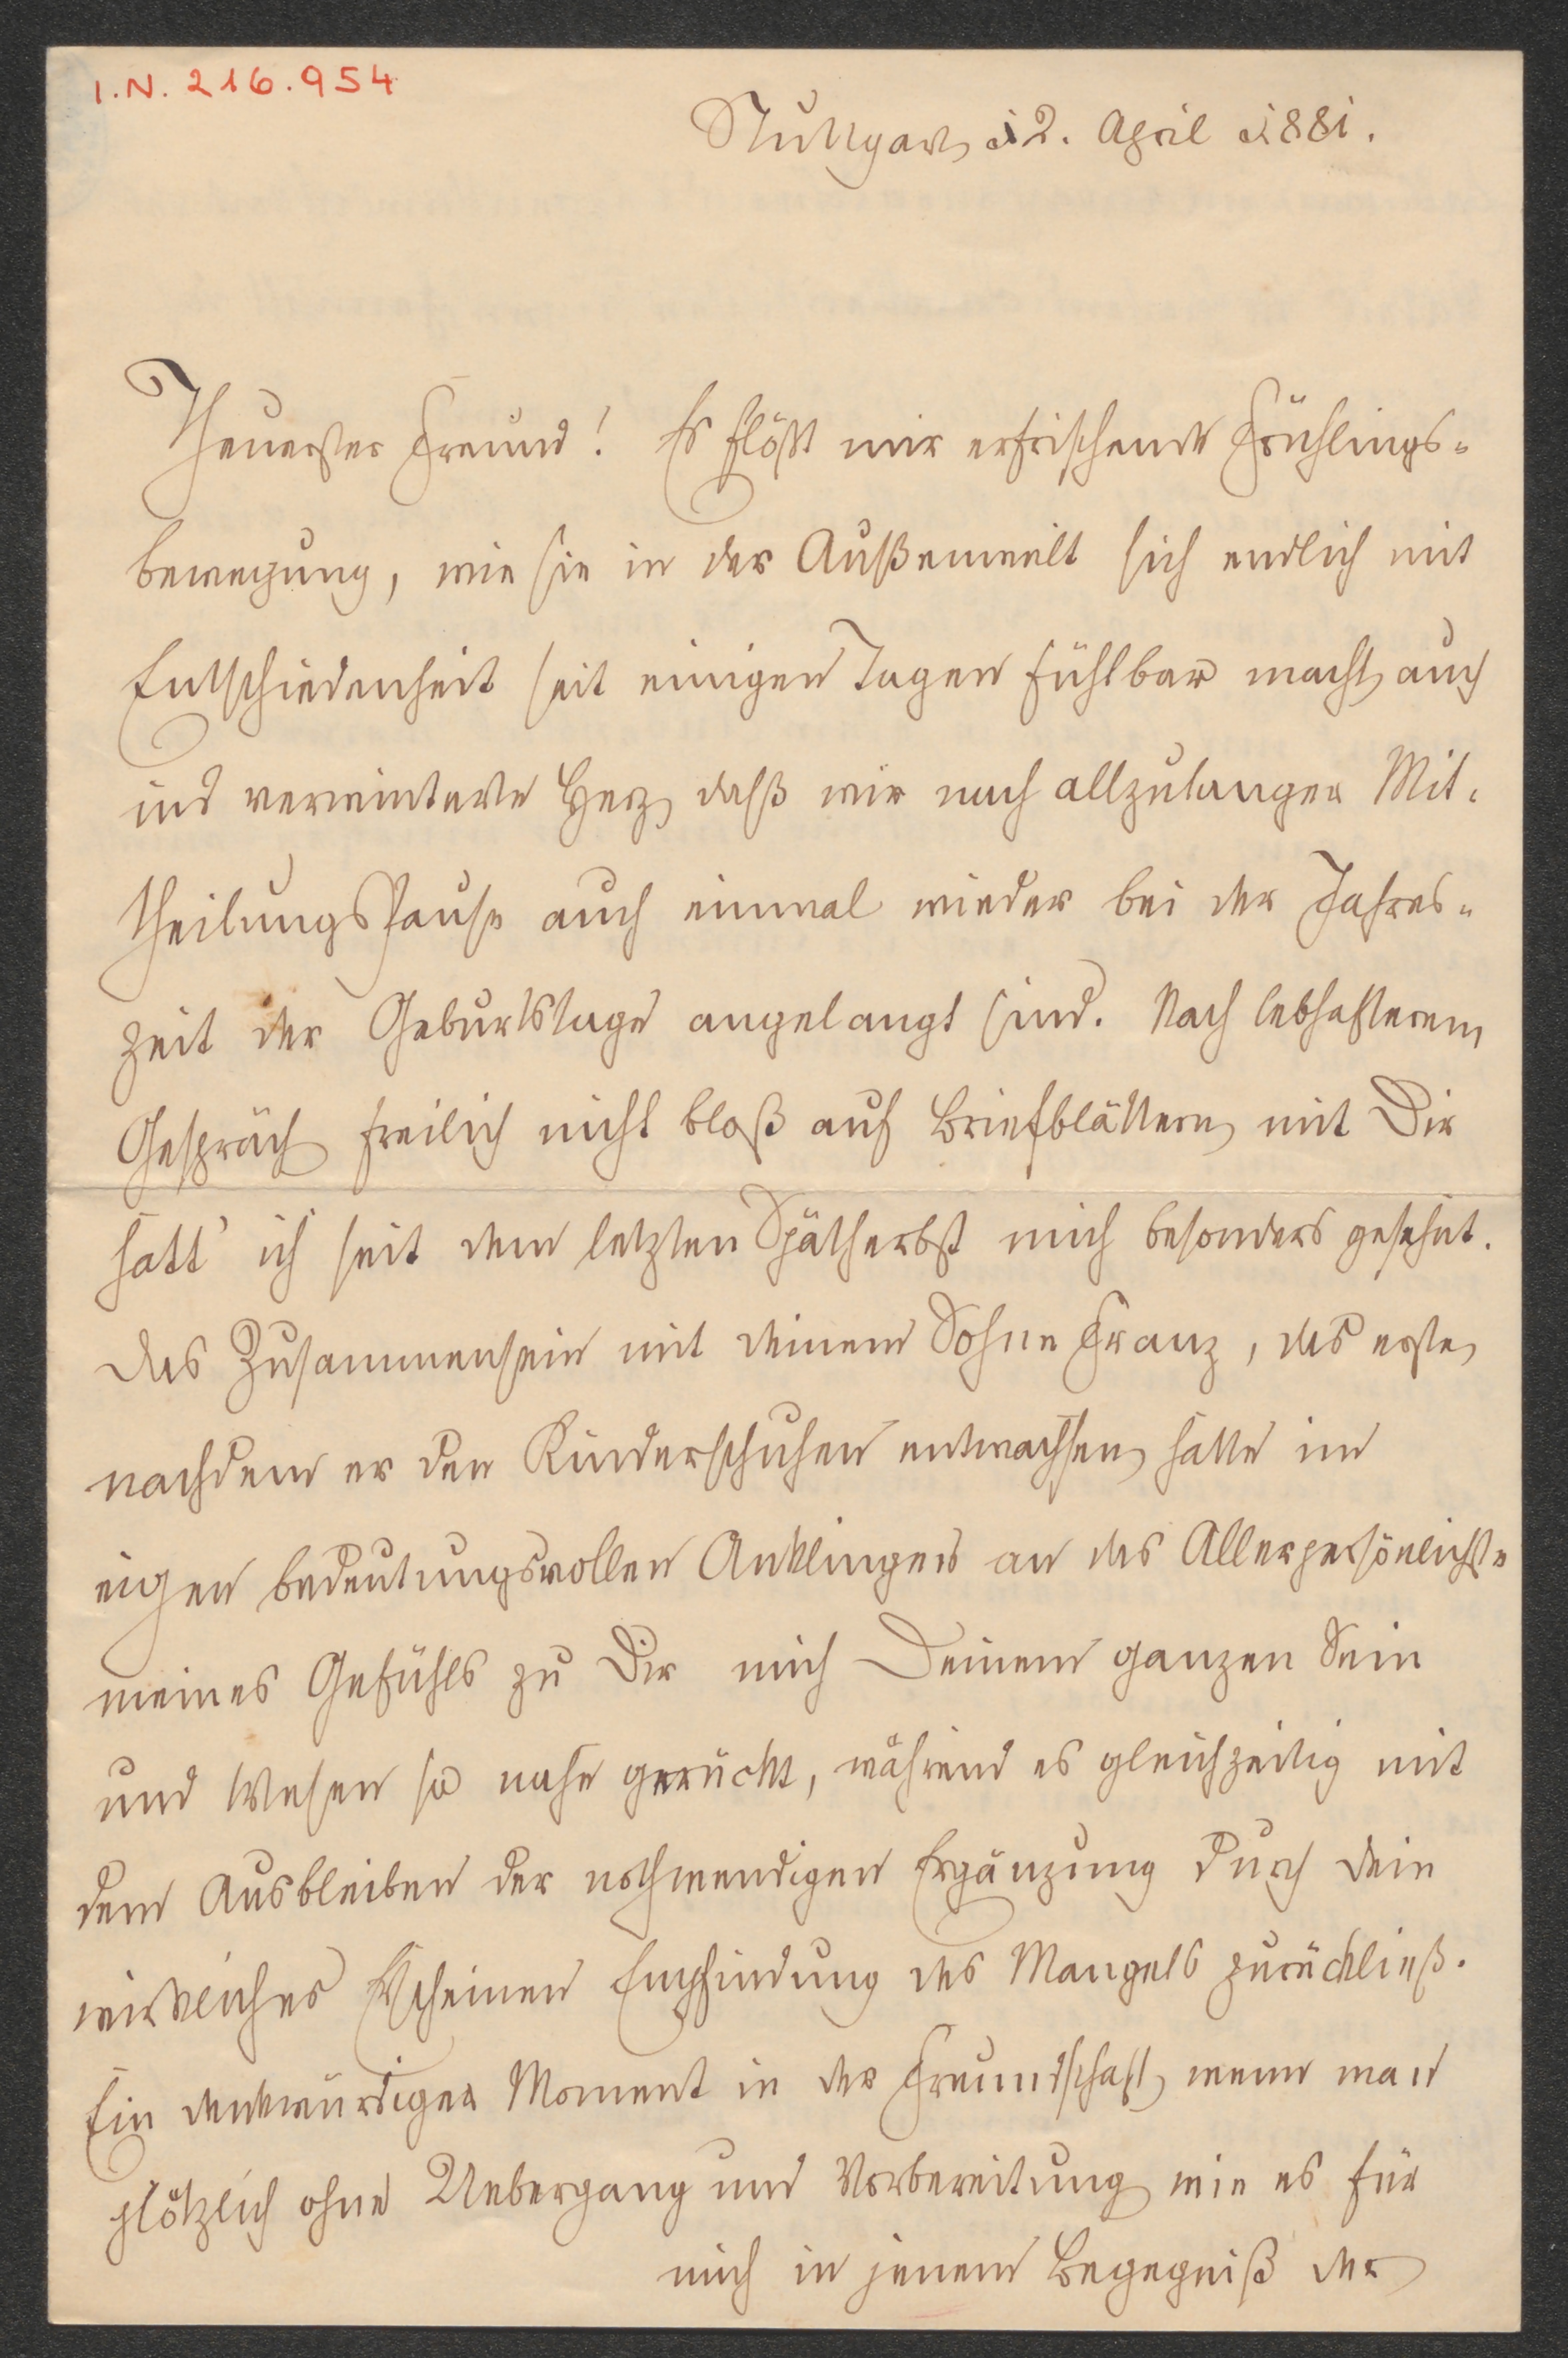 I.N. 216.954
Stuttgart, 12. April 1881.
Theuerster Freund! Es flößt mir erfrischende Frühlings-
bewegung, wie sie in der Außenwelt sich endlich mit
Entschiedenheit seit einigen Tagen fühlbar macht, auch
ins verwinterte Herz, daß wir nach allzulanger Mit-
theilungsPause auch einmal wieder bei der Jahres-
zeit der Geburtstage angelangt sind. Nach lebhafterem
Gespräch, freilich nicht bloß auf Briefblättern, mit Dir
hatt' ich seit dem letzten Spätherbst mich besonders gesehnt.
Das Zusammensein mit deinem Sohne Franz, das erste,
nachdem er den Kinderschuhen entwachsen, hatte im
eigen bedeutungsvollen Anklingen an das Allerpersönlichste
meines Gefühls zu Dir mich Deinem ganzen Sein
und Wesen so nahe gerückt, während es gleichzeitig mit
dem Ausbleiben der nothwendigen Ergänzung durch dein
wirkliches Erscheinen Empfindung des Mangels zurückließ.
Ein denkwürdiger Moment in der Freundschaft, wenn man
plötzlich ohne Uebergang und Vorbereitung, wie es für
mich in jenem Begegniß der